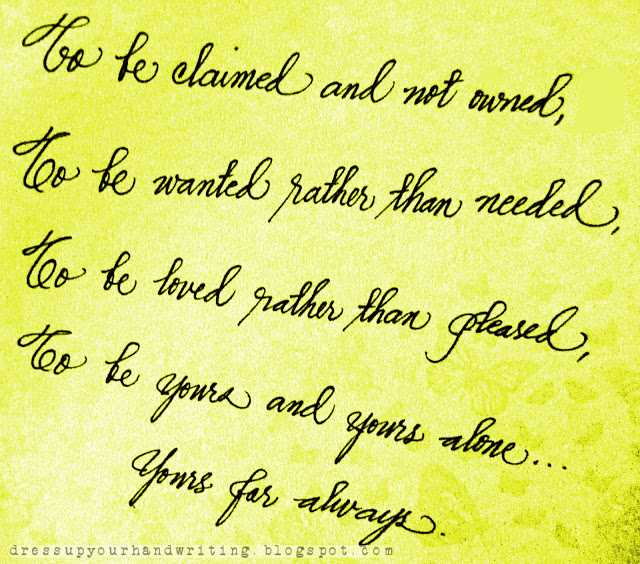 To be claimed and not owned,
To be wanted rather than needed,
To be loved rather than pleased,
To be yours and yours alone...
Yours for always.
dressupyourhandwriting.blogspot.com